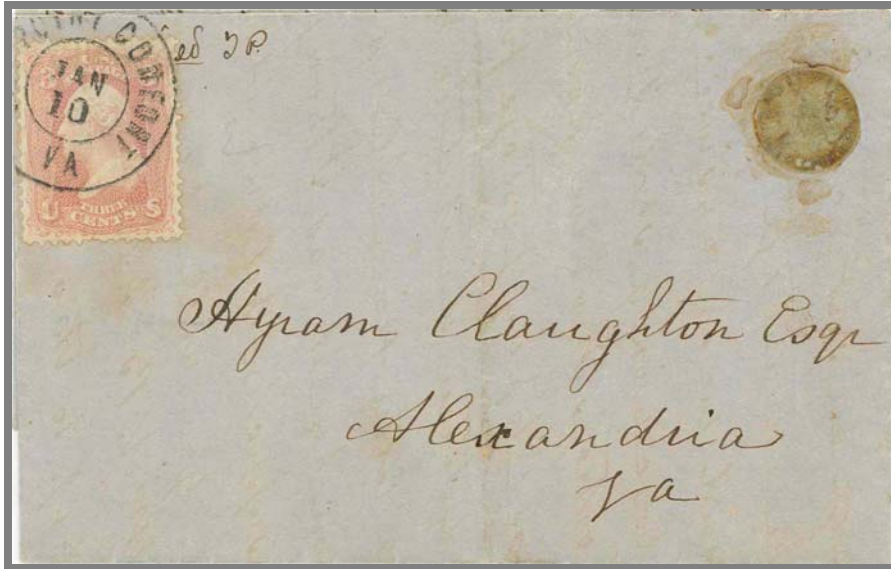 POINT COMFORT
JAN
10
VA
U THREE S
CENTS
ed J P.
Hyram Claughton Esqr
Alexandria
Va